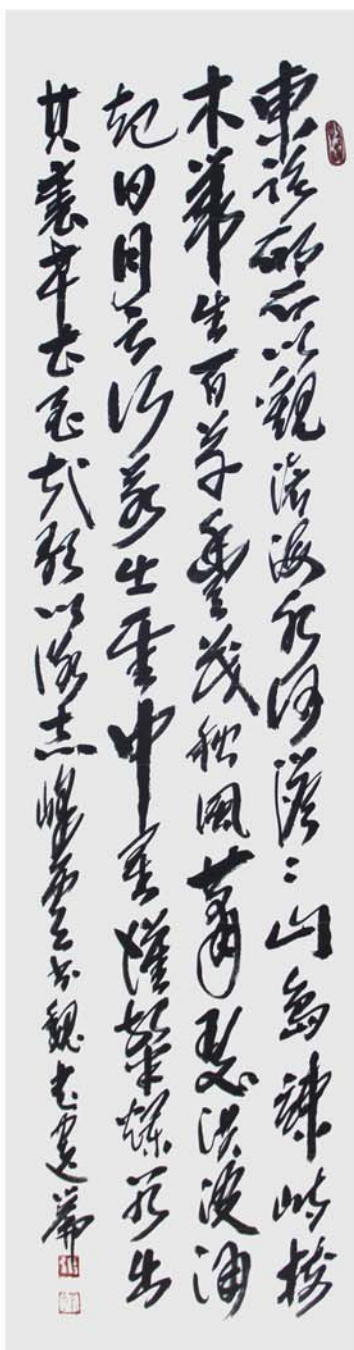 東臨碣石以觀滄海水何澹〻山島竦峙樹
木叢生百草豐茂秋風蕭瑟洪波涌
起日月之行若出其中星漢燦爛若出
其裏幸甚至哉歌以詠志書魏武遺篇